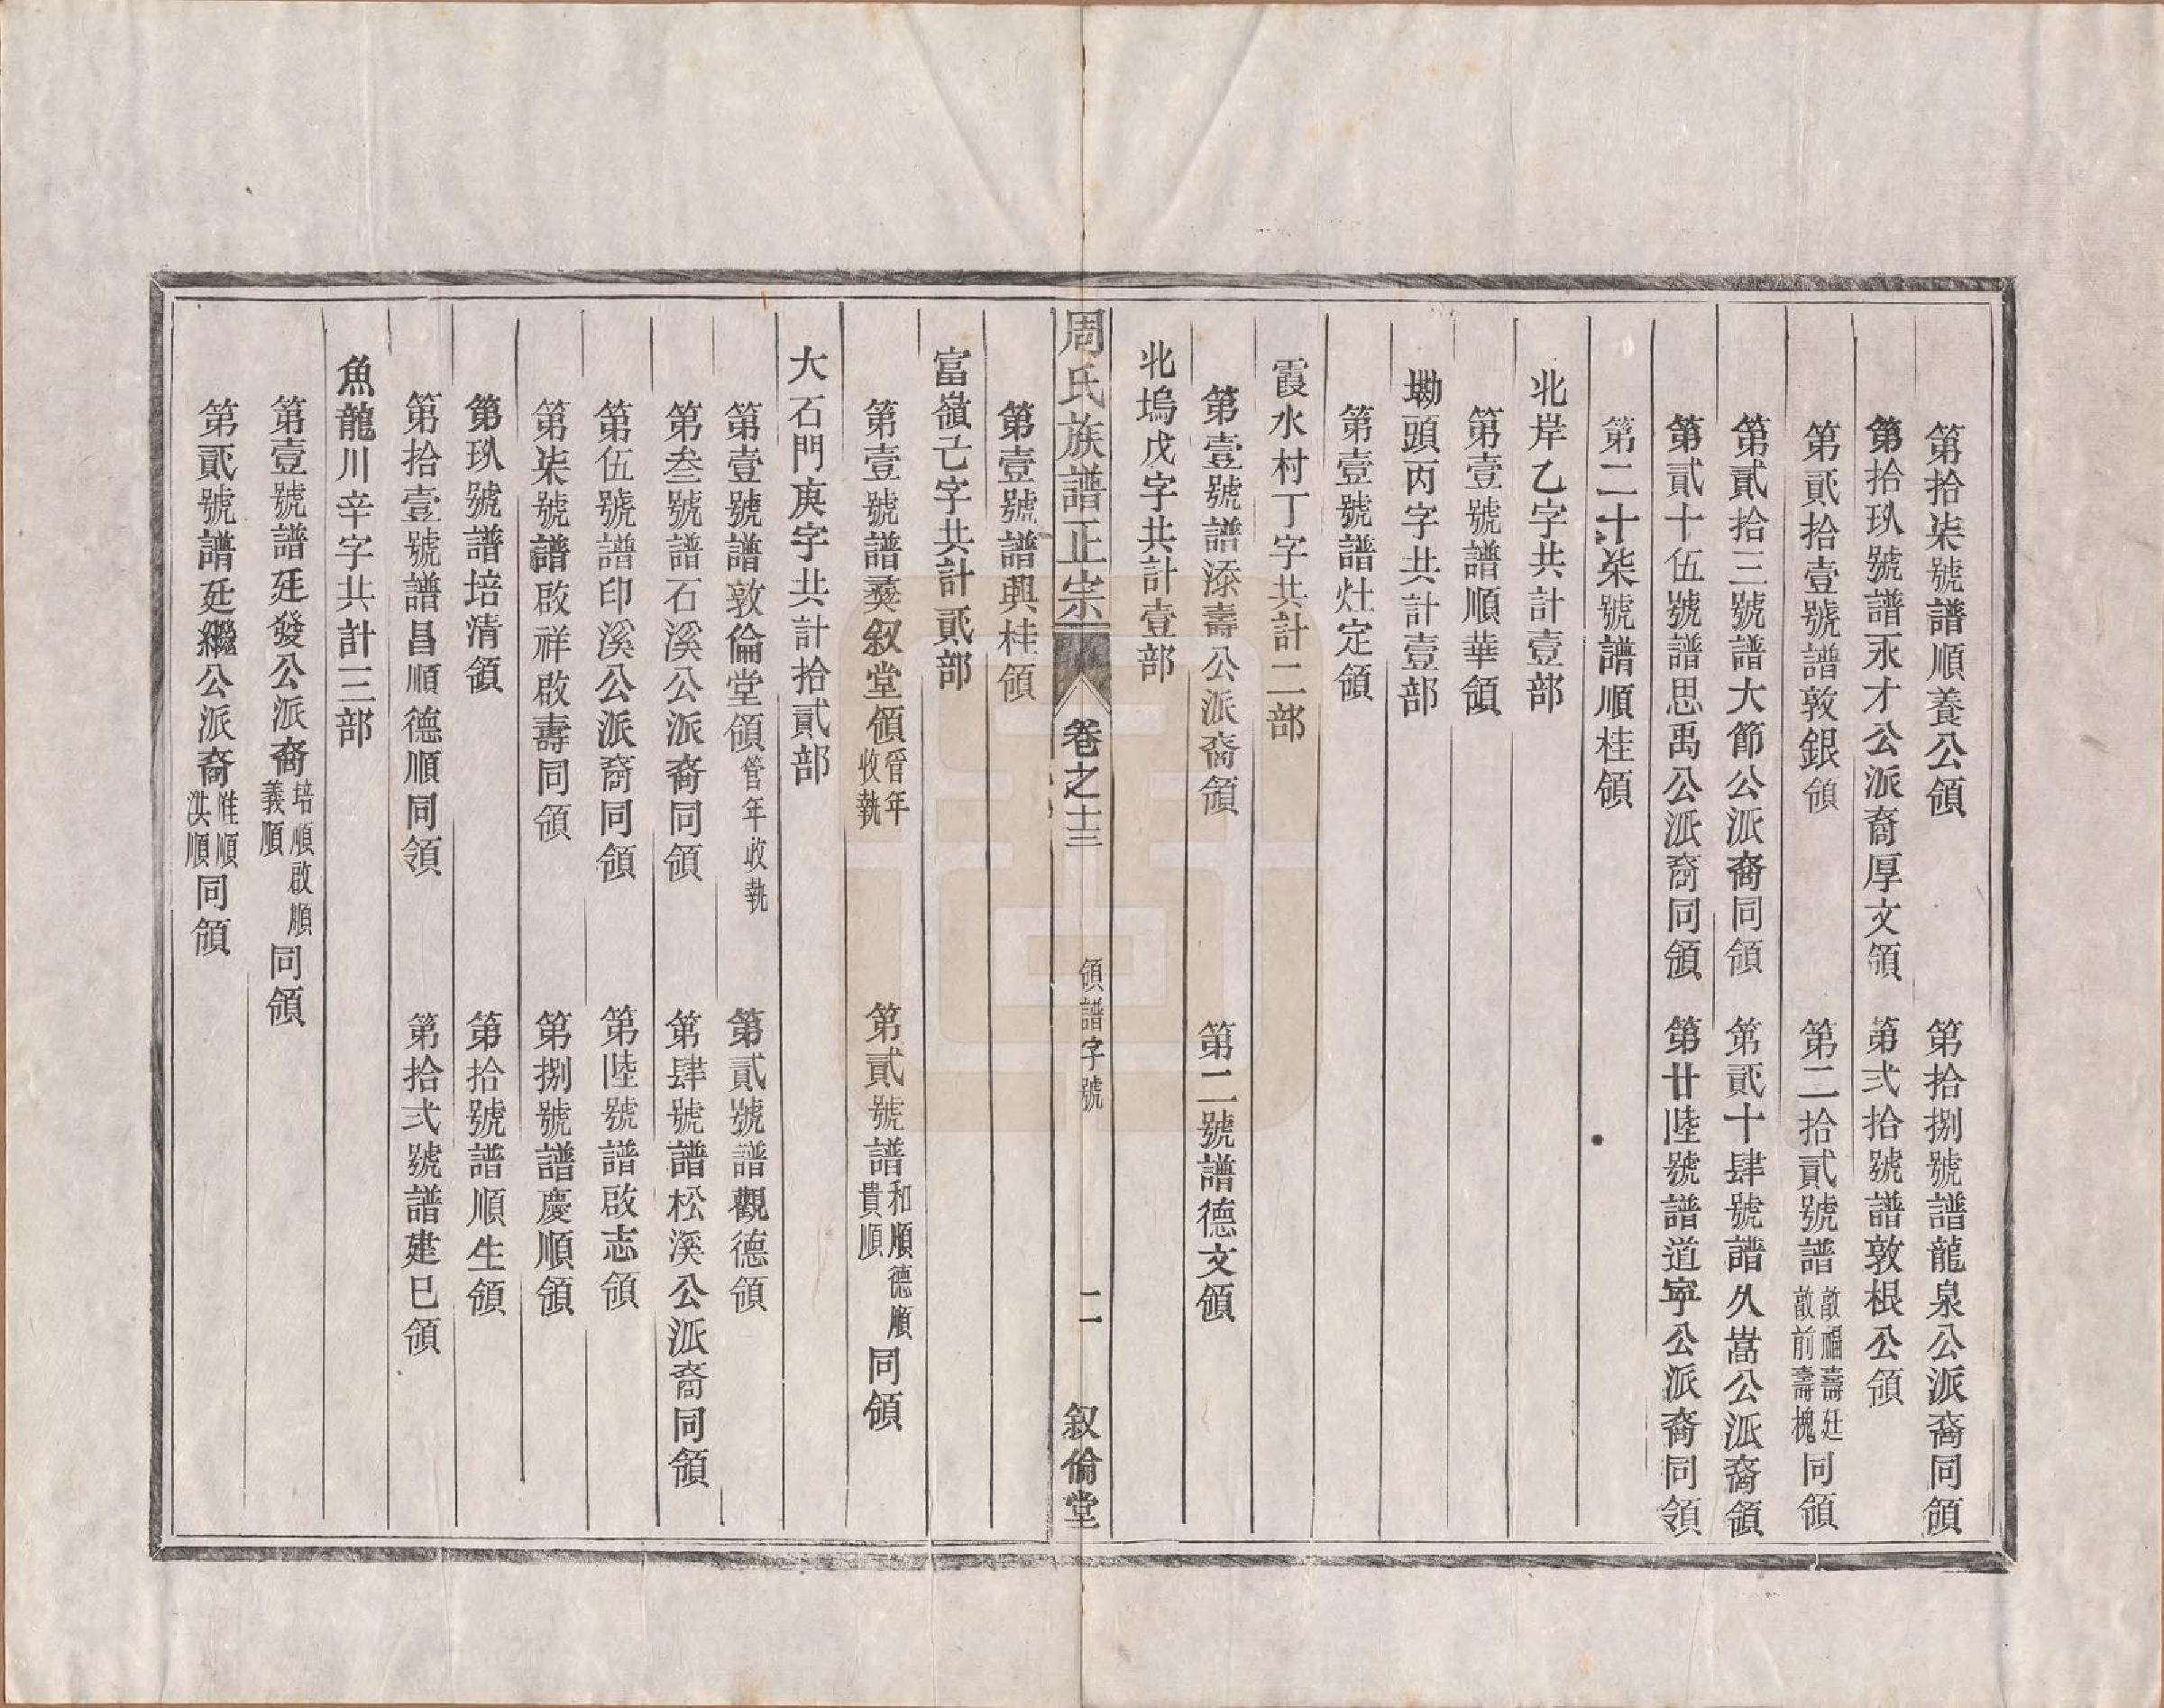 第拾柒號譜順養公領　第拾捌號譜龍泉公派裔同領
第拾玖號譜永才公派裔厚文領　第弍拾號譜敦根公領
第貳拾壹號譜敦銀領　第二拾貳號譜啟福壽廷啟前壽槐同領
第貳拾三號譜大節公派裔同領　第貳十肆號譜久嵩公派裔領
第貳十伍號譜思禹公派裔同領　第廿陸號譜道寧公派裔同領
第二十柒號譜順桂領
北岸乙字共計壹部
第壹號譜順華領
墈頭丙字共計壹部
第壹號譜灶定領
霞水村丁字共計二部
第壹號譜添壽公派裔領　第二號譜德文領
北塢戊字共計壹部
周氏族譜正宗　卷之十三　領譜字號　二　叙倫堂
第壹號譜興桂領
富嶺己字共計貳部
第壹號譜彝叙堂領管年收執　第貳號譜和順德順貴順同領
大石門庚字共計拾貳部
第壹號譜敦倫堂領管年收執　第貳號譜觀德領
第叁號譜石溪公派裔同領　第肆號譜松溪公派裔同領
第伍號譜印溪公派裔同領　第陸號譜啟志領
第柒號譜啟祥啟壽同領　第捌號譜慶順領
第玖號譜培清領　第拾號譜順生領
第拾壹號譜昌順德順同領　第拾弍號譜建巳領
魚龍川辛字共計三部
第壹號譜廷發公派裔培順啟順義順同領
第貳號譜廷繼公派裔惟順洪順同領